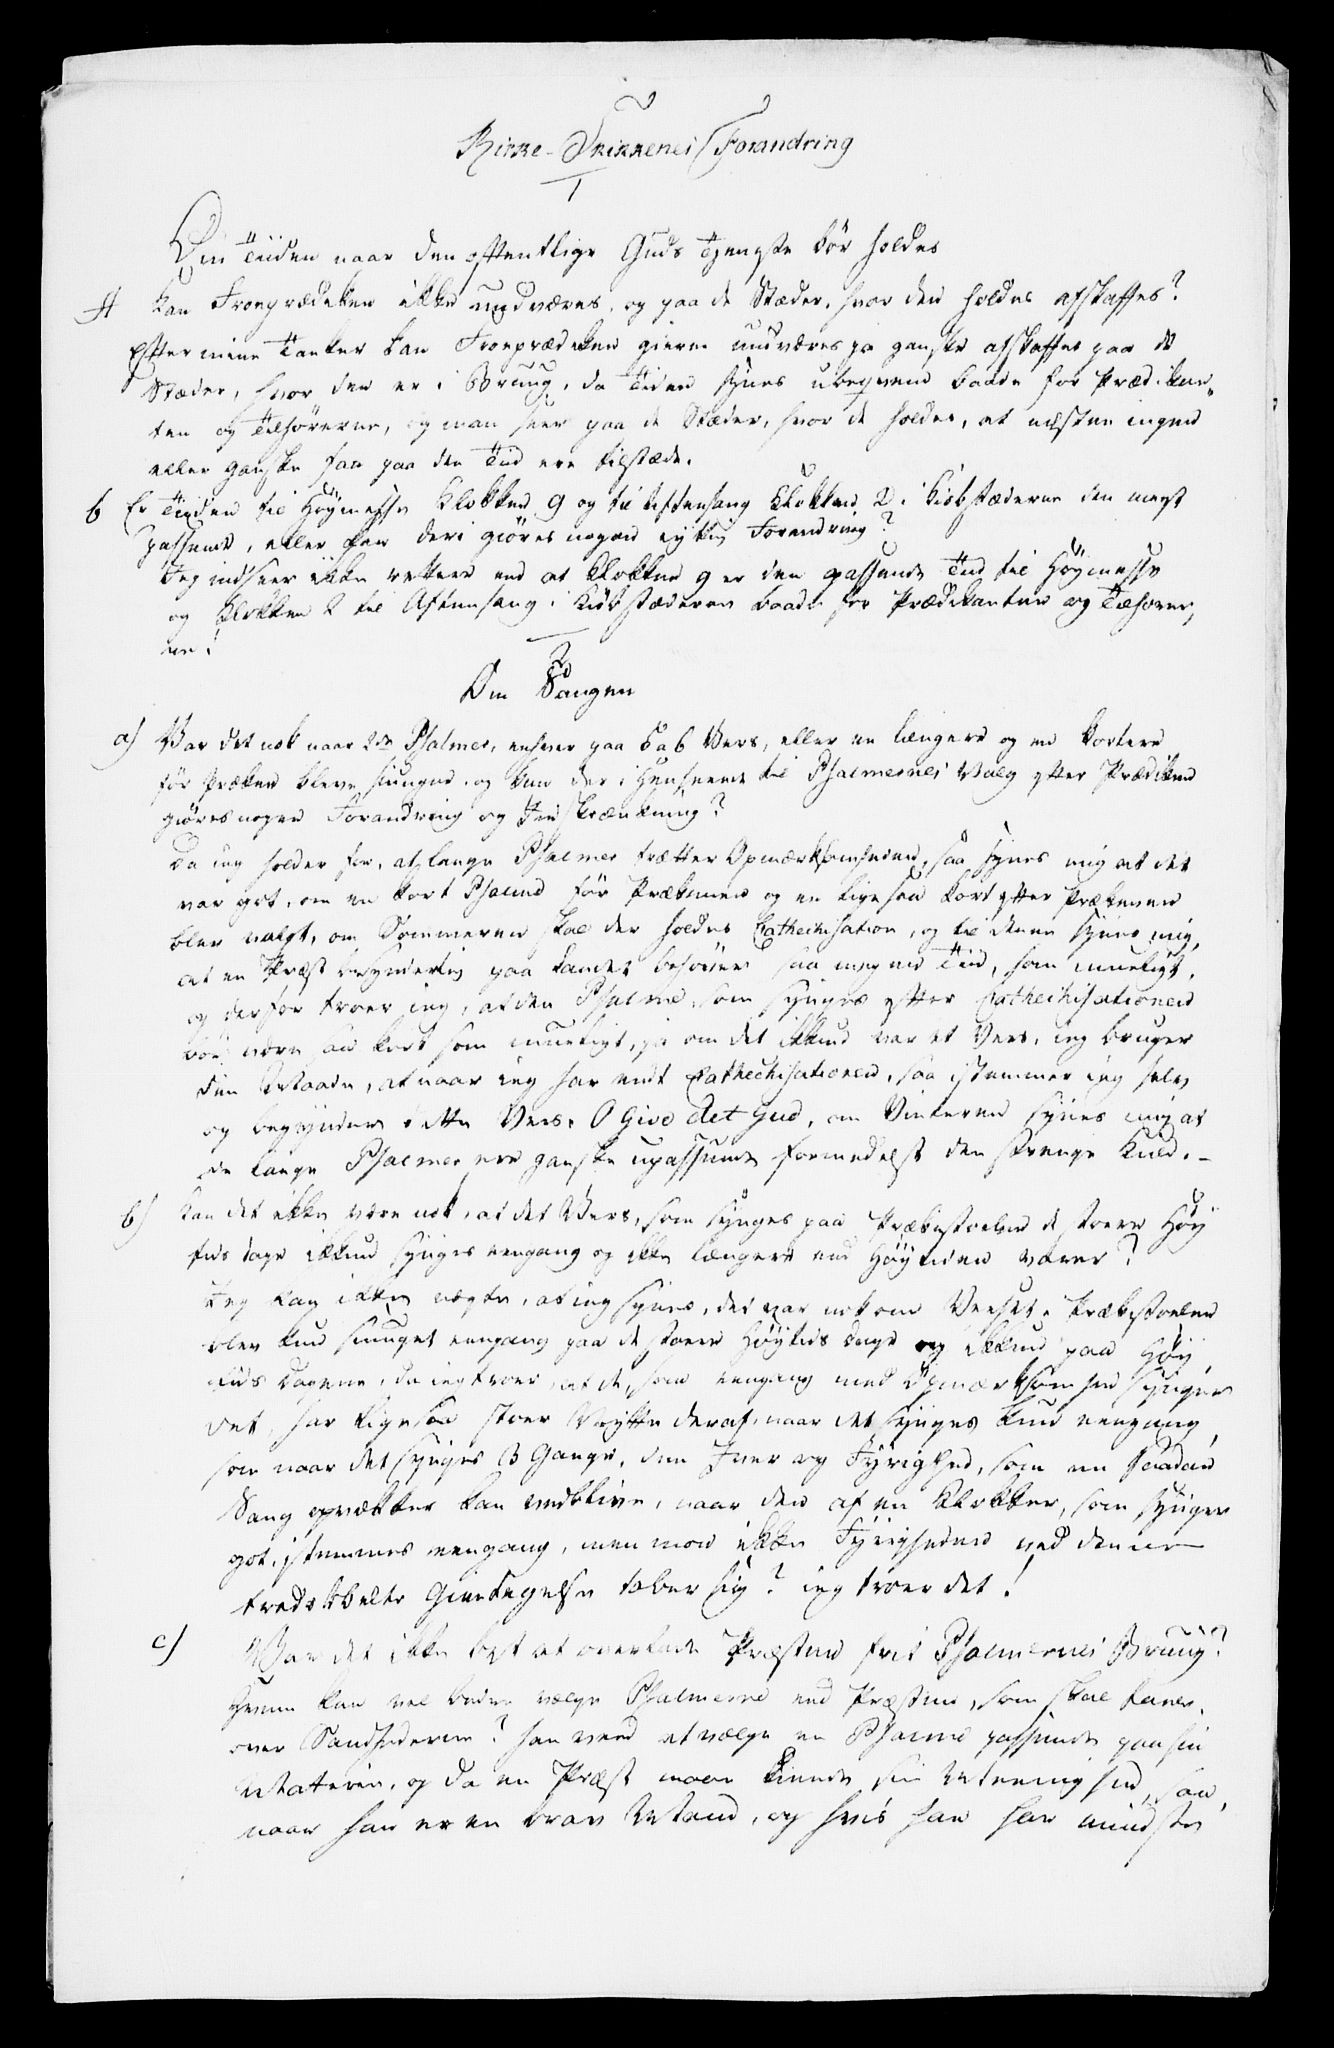 Kirke-Skikkenes Forandring
1
Om Tiiden naar den offentlige Guds Tieneste bör holdes
A Kan Froeprædiken ikke undværes, og paa de Stæder, hvor den holdes afskaffes?
Efter mine Tanker kan Froeprædiken gierne undværes ja ganske afskaffes paa de
Stæder, hvor den er i Bruug, da Tiden synes ubeqvem baade for Prædikan„
ten og Tilhörerne, og man seer paa de Stæder, hvor de holdes, at næsten ingen
eller ganske faa paa den Tiid ere tilstæde.
b Er Tiiden til Höymesse Klokken 9 og til Aftensang Klokken 2 i Kiöbstæderne den meest
passende, eller kan deri giöres nogen nyttig Forandring?
Jeg indseer ikke rettere end at Klokken 9 er den passende Tiid til Höymesse
og Klokken 2 til Aftensang i Kiöbstæderne baade for Prædikanten og Tilhörer„
ne!
2
Om Sangen
a) Var det nok naar 2de Psalmer, enhver paa 5 a 6 Vers, eller en længere og en kortere
för Præken bleve siungne, og kan der i Henseende til Psalmernes Valg efter Prædiken
giöres nogen Forandring og Indskrænkning?
Da ieg holder for, at lange Psalmer trætter Opmærksomheden, saa synes mig at det
var got, om en kort Psalme för Prækenen og en ligesaa kort efter Prækenen
blev valgt, om Sommeren skal der holdes Cathechisation, og til denne synes mig,
at en Præst besynderlig paa Landet behöver saa megen Tiid, som mueligt,
og derfor troer ieg, at den Psalme, som synges efter Cathechisationen
bör være saa kort som mueligt, ja om det ikkun var et Vers, ieg bruger
den Maade, at naar ieg har endt Cathechisationen, saa istemmer ieg selv
og begynder dette Vers: O Give det Gud, om Vinteren synes mig at
de lange Psalmer ere ganske upassende formedelst den strenge Kuld. -
b) Kan det ikke være nok, at det Vers, som synges paa Prækestoelen de store Höy
tids dage ikkun synges eengang og ikke længere end Höytiden varer?
Jeg kan ikke nægte, at ieg synes, det var nok om Verset i Prækestoelen
blev kun siunget eengang paa de store Höytids Dage og ikkun paa Höy
tids Dagene, da ieg troer, at de, som eengang med Opmærksomhed synger
det, har ligesaa stoer Nytte deraf, naar det synges kun eengang,
som naar det synges 3 Gange, den Iver og Fyrighed, som en saadan
Sang opvækker kan vedblive, naar den af en Klokker, som synger
got, istemmes eengang, men mon ikke Fyrigheden ved denne
tredobbelte Gientagelse taber sig? ieg troer det!
c) Var det ikke best at overlade Præsten frit Psalmernes Bruug?
Hvem kan vel bedre vælge Psalmerne end Præsten, som skal tale
over Sandhederne? han veed at vælge en Psalme passende paa sin
Materie, og da en Præst maae kiende sin Meenighed, saa
naar han er en brav Mand, og hvis han har mindste